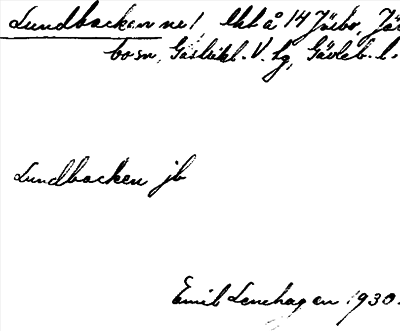 Lundbacken ne! lht å 14 Järbo, Jär
bo sn, Gästrikl. V. tg, Gävleb. l.
Lundbacken jb
Emil Lenhagen 1930.